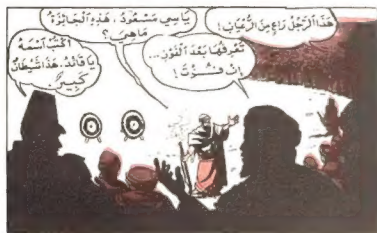 هَذَا الرَّجُلُ رَاعٍ مِنَ الرُّعْيَانِ!
يَا سِي مَسْعُودُ، هَذِهِ الْجَائِزَةُ
مَاهِيَ؟
تَعْرِفُهَا بَعْدَ الْفَوْزِ...
إِنْ فُزْتَ!
اُكْتُبْ اسْمَهُ
يَا قَائِدُ. هَذَا شَيْطَانٌ
كَبِيرٌ.